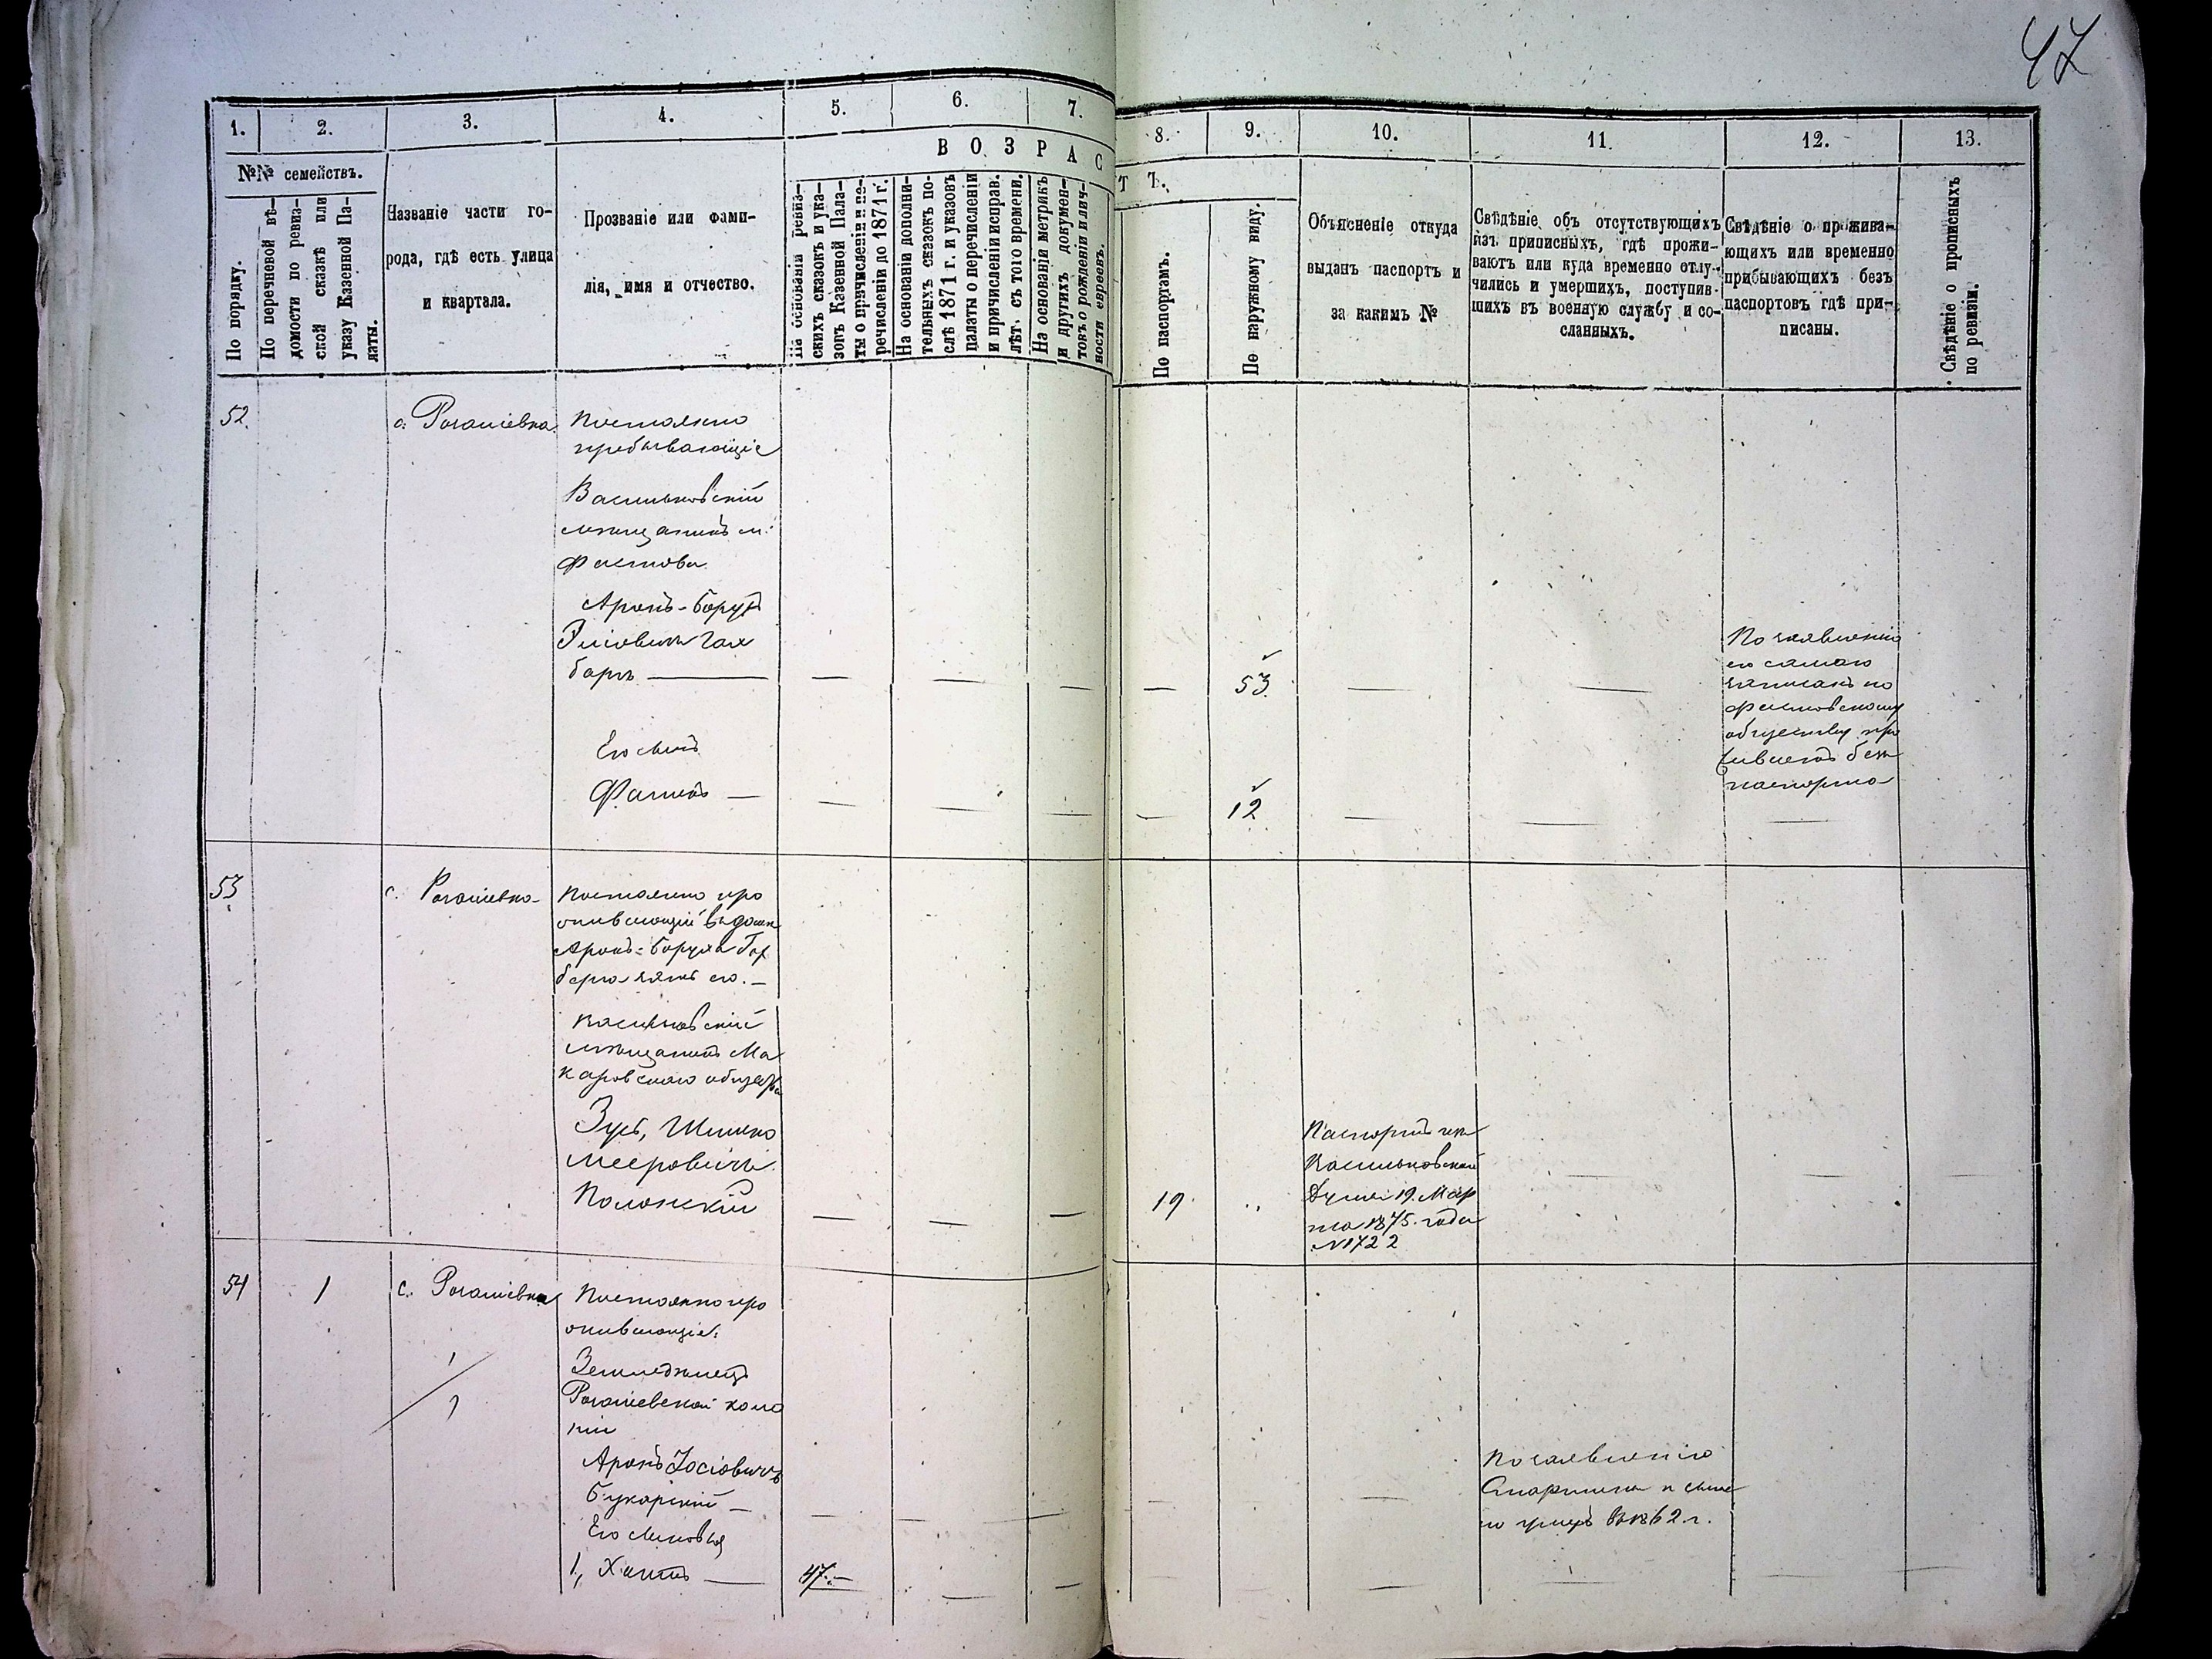 47
1. 2. 3. 4. 5. 6. 7. 8. 9. 10. 11. 12. 13.
ВОЗРАСТЪ.
№№ семействъ.
По порядку.
По перечневой вѣ-
домости по ревиз-
ской сказкѣ или
указу Казенной Па-
латы.
Названіе части го-
рода, гдѣ есть улица
и квартала.
Прозваніе или фами-
лія, имя и отчество.
На основаніи ревиз-
скихъ сказокъ и ука-
зовъ Казенной Пала-
ты о причисленіи и пе-
речисленіи до 1871 г.
На основаніи дополни-
тельныхъ сказокъ по-
слѣ 1871 г. и указовъ
палаты о перечисленіи
и причисленіи исправ.
лѣт. съ того времени.
На основаніи метрикъ
и другихъ докумен-
товъ о рожденіи и лич-
ности евреевъ.
По паспортамъ.
По наружному виду.
Объясненіе откуда
выданъ паспортъ и
за какимъ №
Свѣдѣніе объ отсутствующихъ
изъ приписныхъ, гдѣ прожи-
ваютъ или куда временно отлу-
чились и умершихъ, поступив-
шихъ въ военную службу и со-
сланныхъ.
Свѣдѣніе о прожива-
ющихъ или временно
прибывающихъ безъ
паспортовъ гдѣ при-
писаны.
Свѣдѣніе о прописныхъ
по ревизіи.
52. с. Рогашевка
Постоянно
пребывающіе
Васильковскій
мѣщанинъ м.
Фастова
Аронъ-Борухъ
баръ — — — — — 53. — —
По заявленію
его самаго
записанъ по
Фастовскому
обществу про
живаетъ безъ
паспорта
Его сынъ
— — — — — 12 — — —
53 с. Рогашевка
Постоянно про
живающій въ домѣ
Аронъ-Боруха
зять его. —
Васильковскій
мѣщанинъ Ма
каровскаго общества
Зусь, Шимко
Мееровичъ
Полонскій — — — 19 — —
Паспортъ изъ
Васильковской
Думы 19. Мар
та 1875. года
№ 1722
54 1 с. Рогашевка
Постоянно про
живающіе:
Земледѣлецъ
Рогашевской коло
ніи
Аронъ Іосіовичъ
Букарскій — — — — — —
По заявленію
Старшины и
умеръ въ 1862 г.
Его сыновья
1, — 47 — — — — — — —